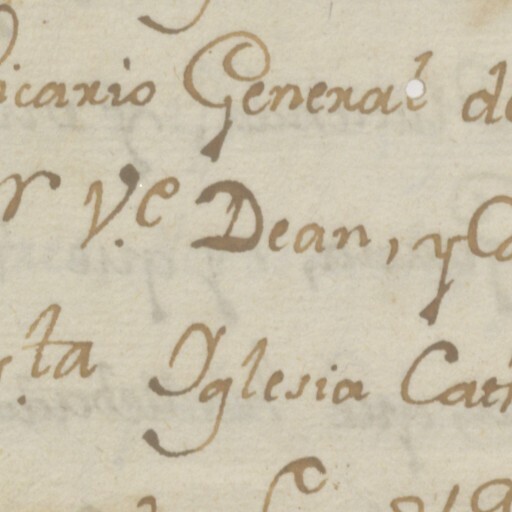 icario General de
r V.e Dean, y Ca
sta Iglesia Cath